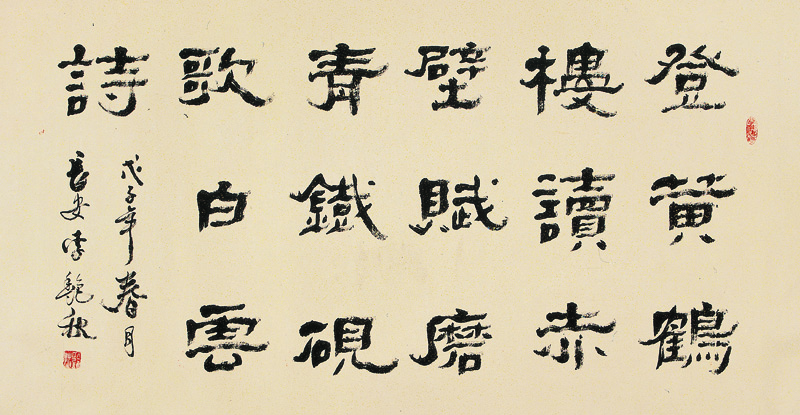 登黄鶴
樓讀赤
壁賦磨
青鐵硯
歌白雲
詩
戊子年春月
長安李艷秋